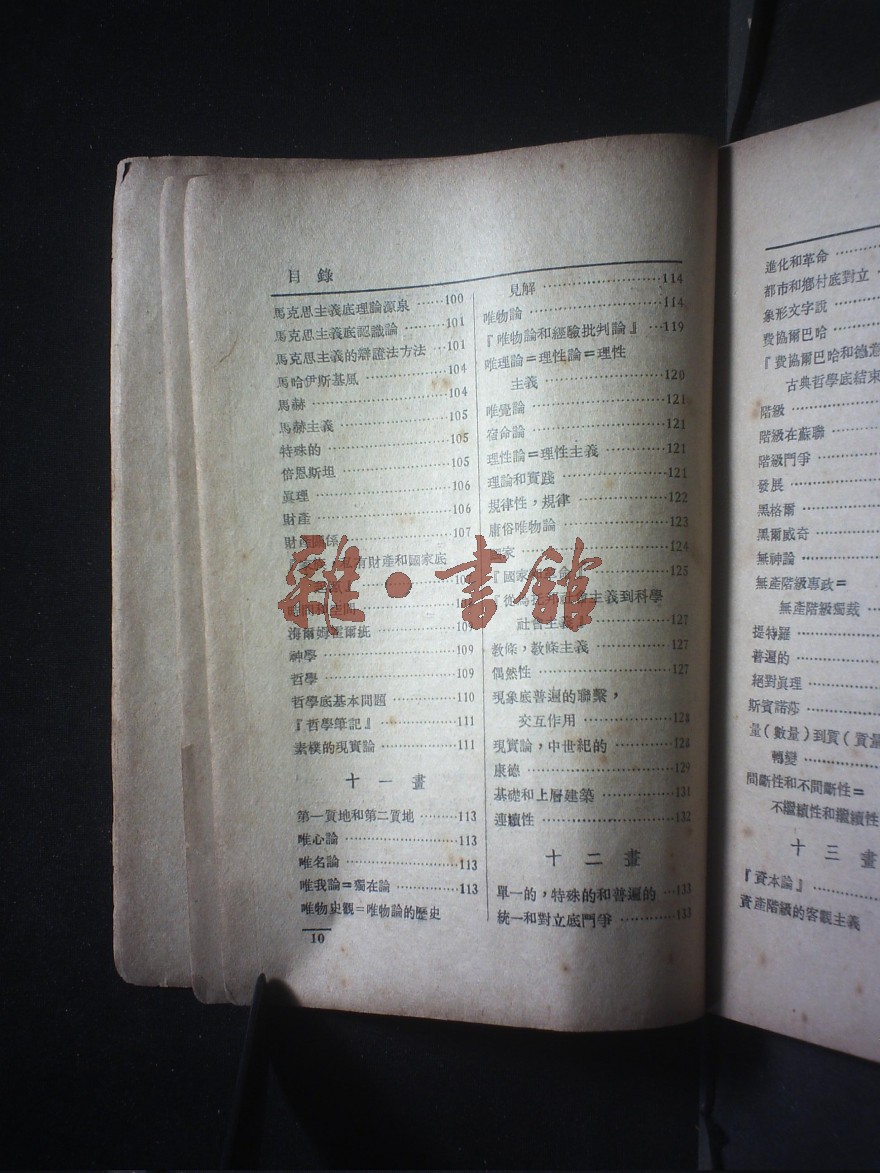 目錄
馬克思主義底理論源泉 ······100
馬克思主義底認識論 ·········101
馬克思主義的辯證法方法 ···101
馬哈伊斯基風 ···············104
馬赫 ························104
馬赫主義 ···················105
特殊的 ······················105
倍恩斯坦 ···················105
眞理 ························106
財產 ························106
財產關係 ···················107
私有財產和國家底
海爾姆霍爾兹 ···············109
神學 ························109
哲學 ························109
哲學底基本問題 ············110
『哲學筆記』 ···············111
素樸的現實論 ···············111
十一畫
第一質地和第二質地 ·········113
唯心論 ······················113
唯名論 ······················113
唯我論=獨在論 ···············113
唯物史觀=唯物論的歷史
見解 ························114
唯物論 ······················114
『唯物論和經驗批判論』 ···119
唯理論=理性論=理性
主義 ························120
唯覺論 ······················121
宿命論 ······················121
理性論=理性主義 ············121
理論和實踐 ··················121
規律性，規律 ···············122
庸俗唯物論 ··················123
家 ··························124
『國家 ······················125
主義到科學
社會主義 ···················127
教條，教條主義 ············127
偶然性 ······················127
現象底普遍的聯繫，
交互作用 ···················128
現實論，中世紀的 ············128
康德 ························129
基礎和上層建築 ············131
連續性 ······················132
十二畫
單一的，特殊的和普遍的 ···133
統一和對立底鬥爭 ············133
10
進化和革命
都市和鄉村底對立
象形文字說
費協爾巴哈
『費協爾巴哈和德意
古典哲學底結束
階級
階級在蘇聯
階級鬥爭
發展
黑格爾
黑爾威奇
無神論
無產階級專政=
無產階級獨裁
提特羅
普遍的
絕對眞理
斯賓諾莎
量(數量)到質(質量
轉變
間斷性和不間斷性=
不繼續性和繼續性
十三畫
『資本論』
資產階級的客觀主義
雜·書館